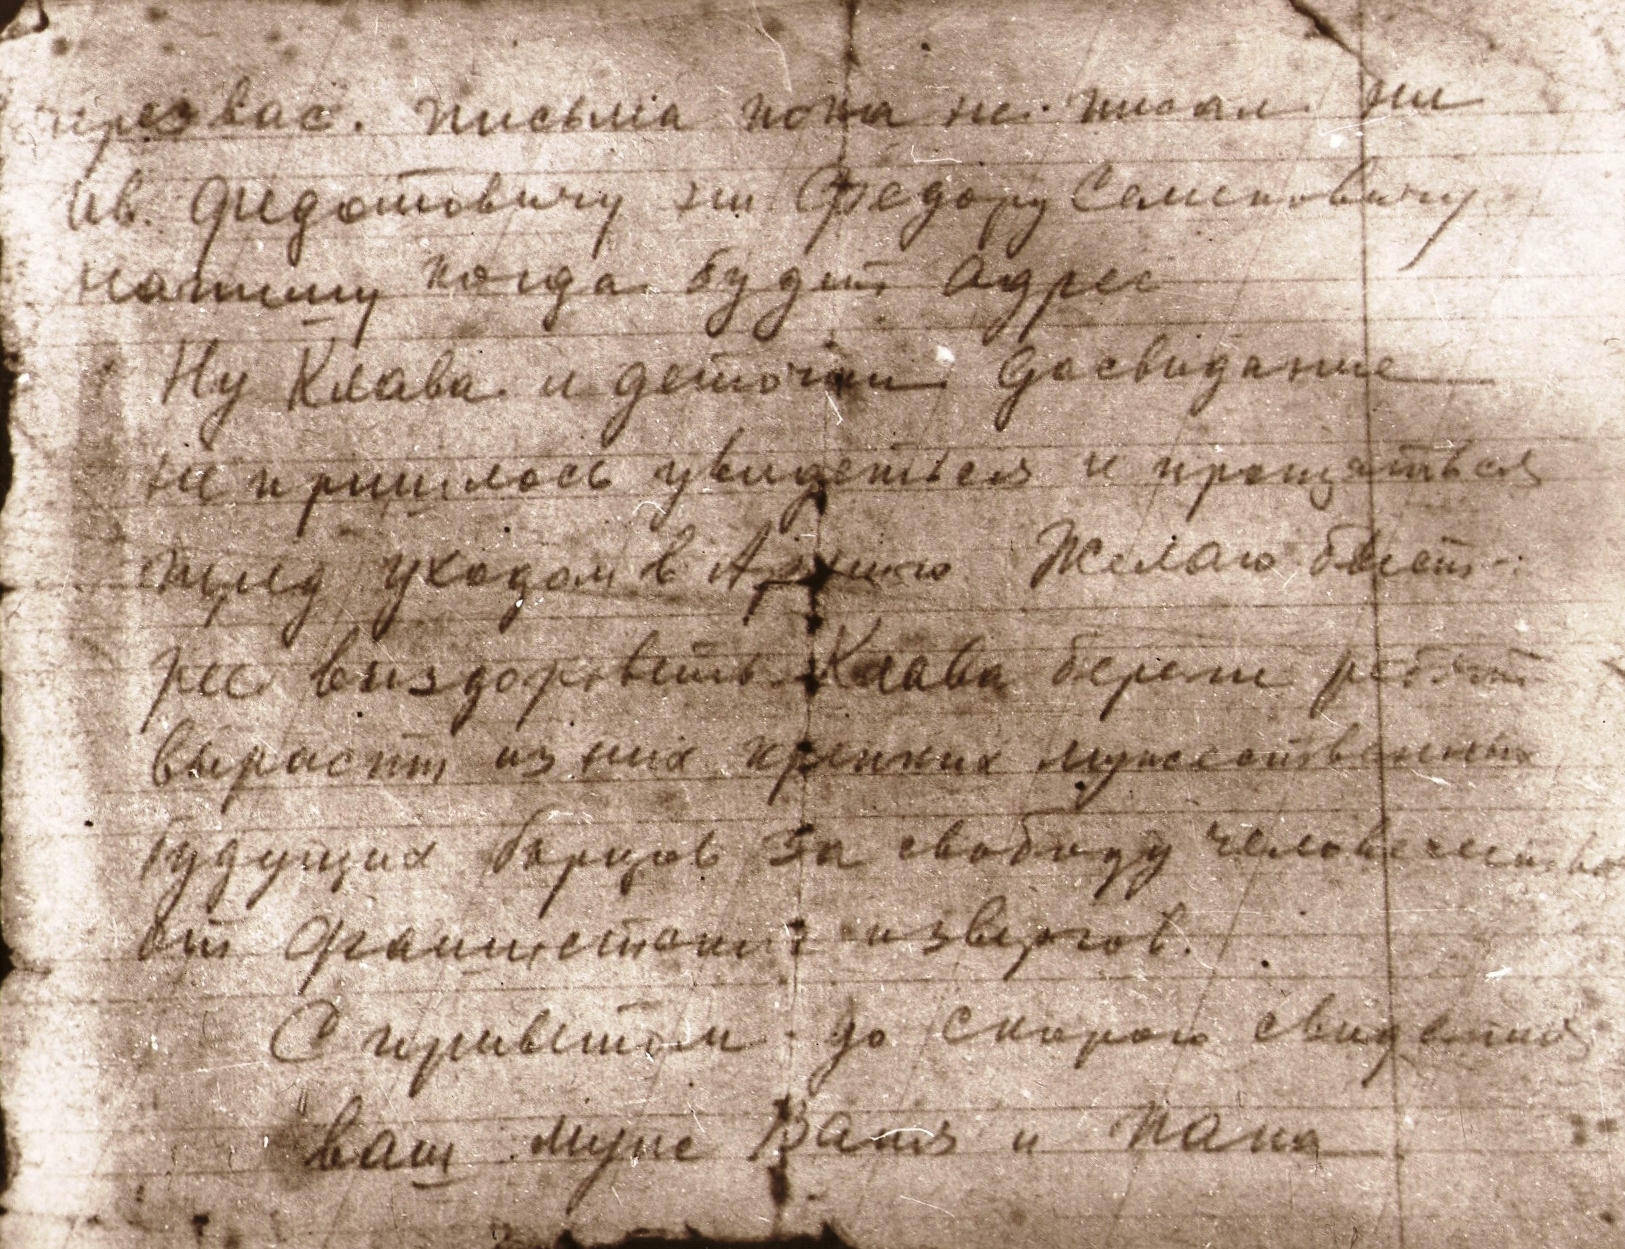 через вас. письма пока не писал ни
Ив. Федотовичу ни Федору Семеновичу
напишу когда будит адрес
Ну Клава и деточки досвидание
не пришлось увидеться и прощаться
перед уходом в Армию Желаю быст-
рее выздороветь. Клава береги ребят
вырасти из них крепких мужественных
будущих борцов за свободу человечества
от фашистских извергов.
С приветом до скорого свидания
ваш муж Ваня и папа